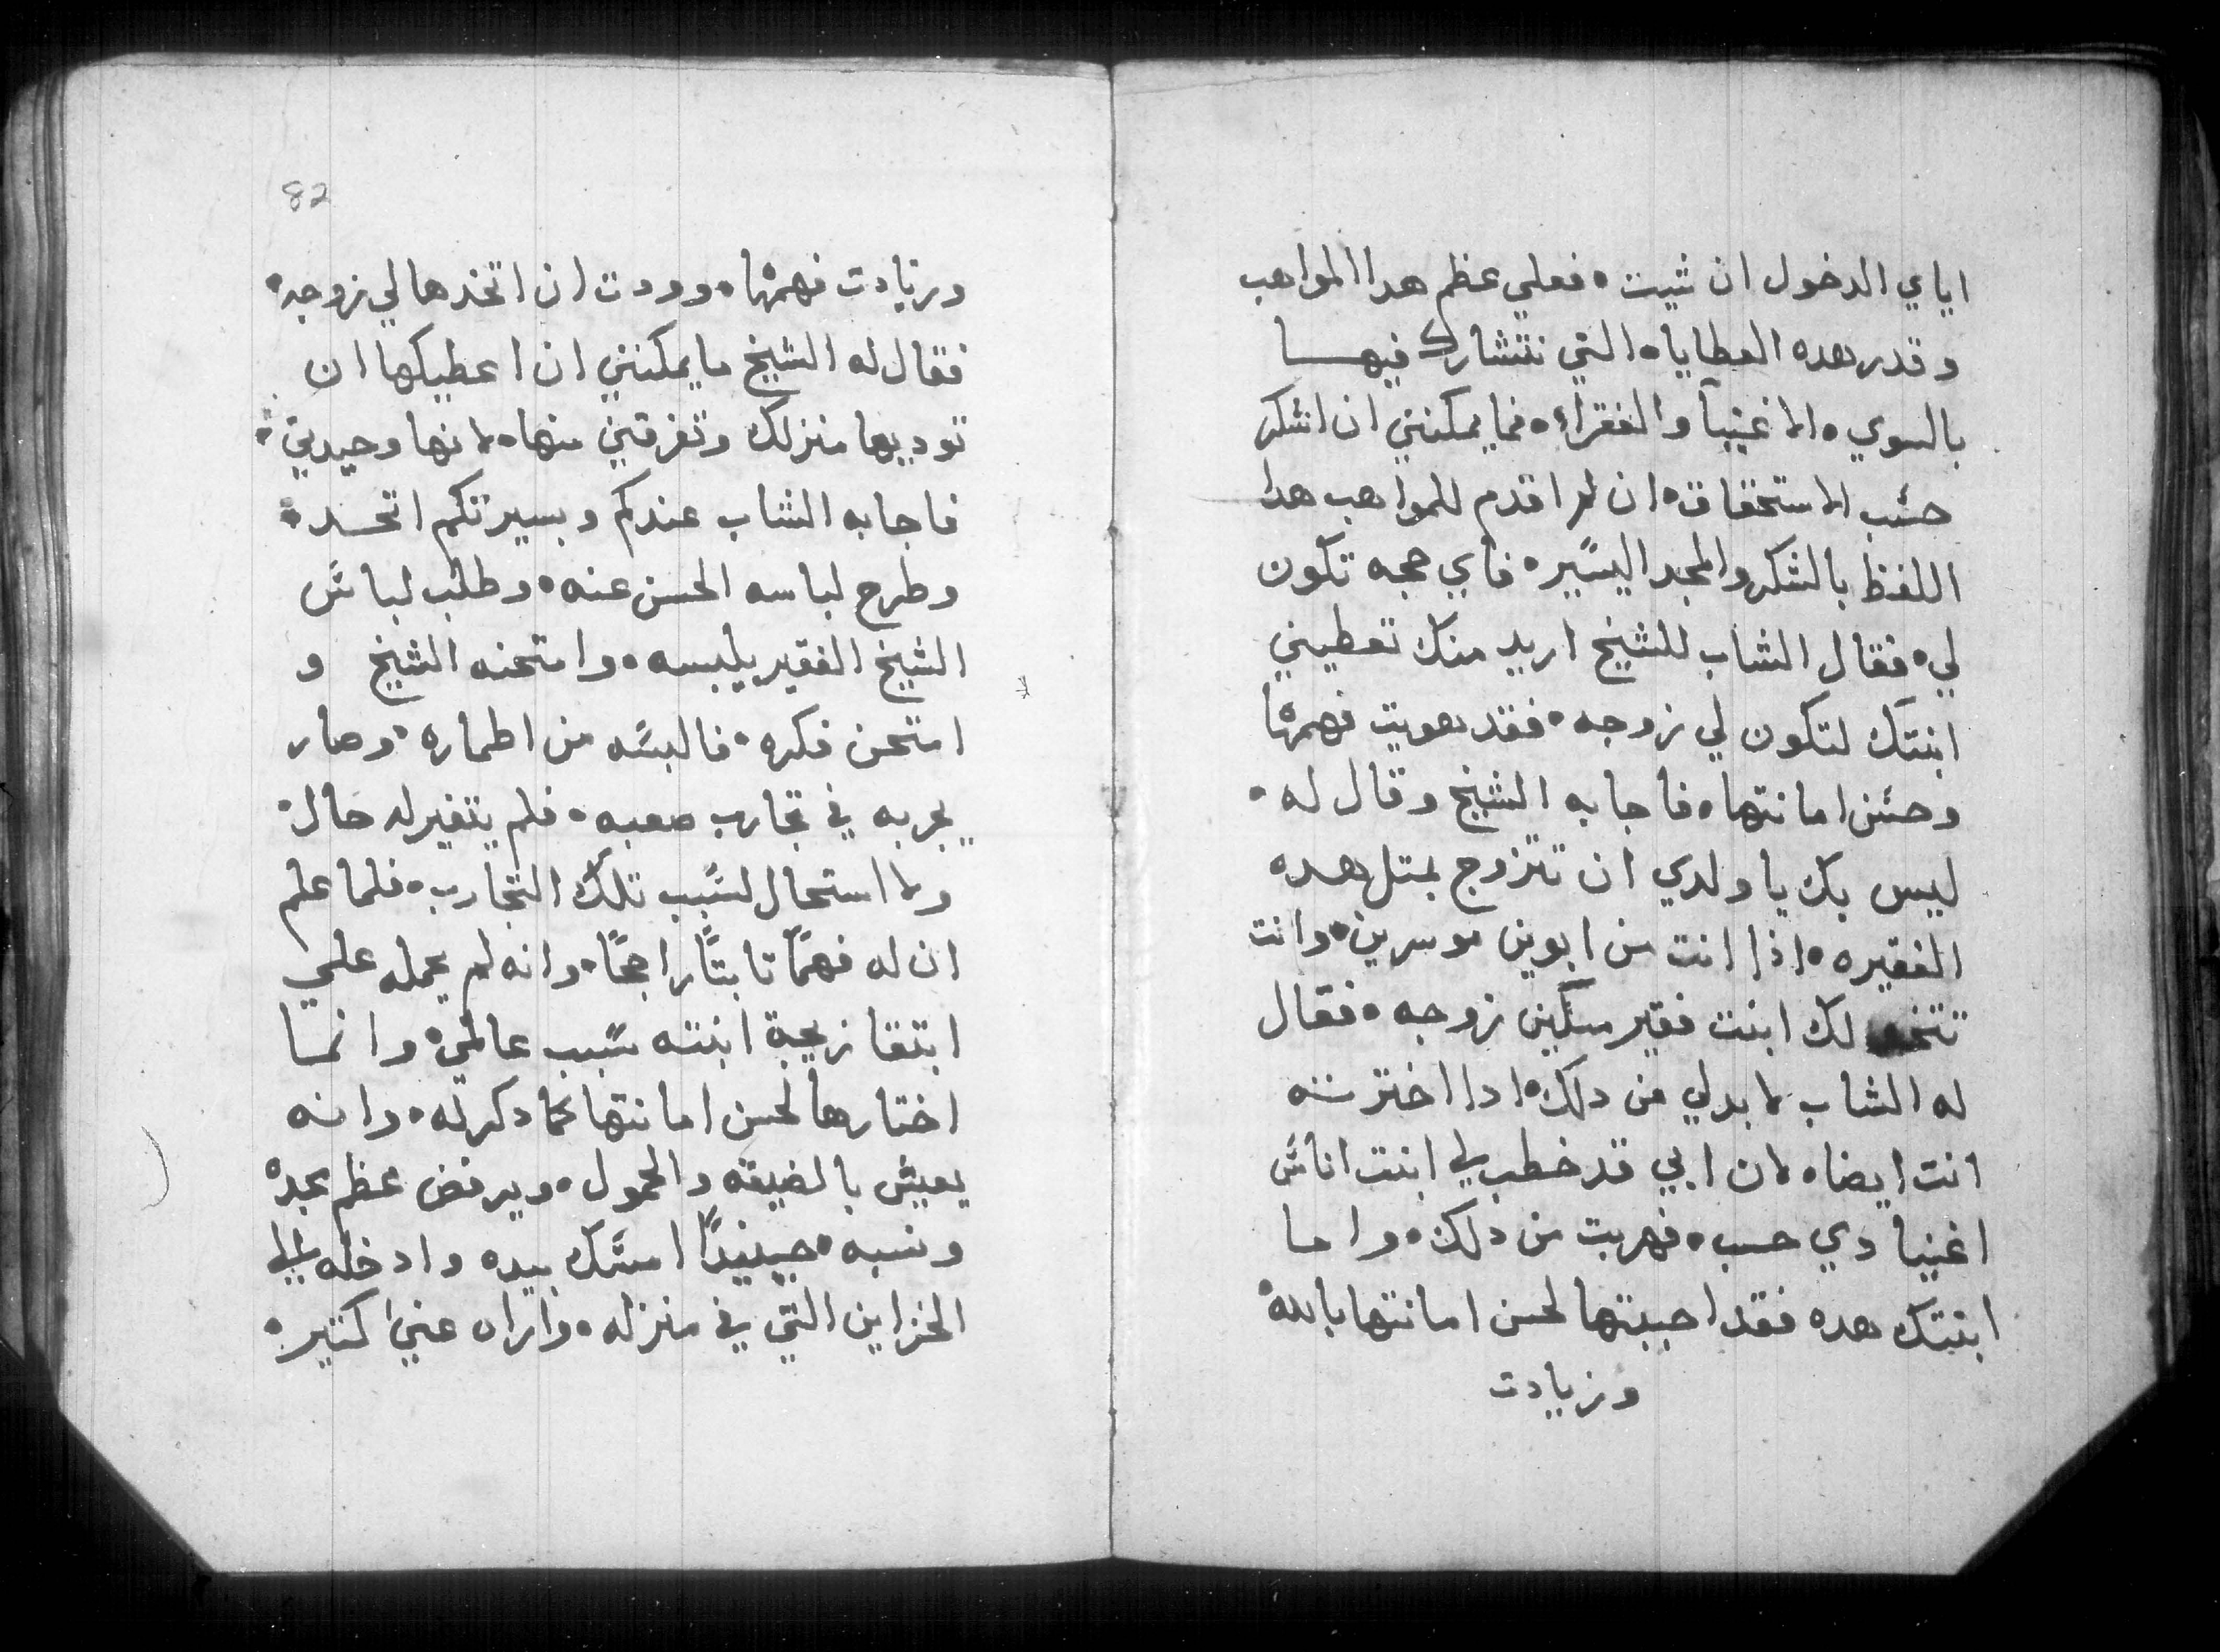 اياي الدخول ان شيت ° فعلي عظم هدا المواهب
وقدر هده العطايا ° التي نتشارك فيها
بالسوي ° الاغنيآ والفقراء ° فما يمكنني ان اشكر
حسب الاستحقاق ° ان لم اقدم للمواهب هدا
اللفظ بالشكر والمجد اليسير ° فاي حجه تكون
لي ° فقال الشاب للشيخ اريد منك تعطيني
ابنتك لتكون لي زوجه ° فقد هويت فهمها
وحسن امانتها ° فاجابه الشيخ وقال له °
ليس بك يا ولدي ان تتزوج بمتل هده
الفقيره ° اذا انت من ابوين موسرين ° وانت
تتخد لك ابنت فقير مسكين زوجه ° فقال
له الشاب لا بد لي من دلك ° ادا اخترته
انت ايضا ° لان ابي قد خطب لي ابنت اناس
اغنيا دي حسب ° فهربت من دلك ° واما
ابنتك هده فقد احببتها لحسن امانتها بالله °
وزيادت
82
وزيادت فهمها ° ووددت ان اتخدها لي زوجه °
فقال له الشيخ ما يمكنني ان اعطيكها ان
توديها منزلك وتفرقني منها ° لانها وحيدتي °
فاجابه الشاب عندكم وبسيرتكم اتحد °
وطرح لباسه الحسن عنه ° وطلب لباس
الشيخ الفقير يلبسه ° وامتحنه الشيخ و
امتحن فكره ° فالبسه من اطماره ° وصار
يجربه في تجارب صعبه ° فلم يتغير له حال °
ولا استحال لسبب تلك التجارب ° فلما علم
ان له فهمًا تابتًا راجحًا ° وانه لم يحمله علي
ابتغا زيجة ابنته سبب عالمي ° وانما
اختارها لحسن امانتها كما دكر له ° وانه
يعيش بالضيقه والخمول ° ويرفض عظم مجده
ونسبه ° حينيدًا امسك بيده وادخله الي
الخزاين التي في منزله ° واراه غني كتير °